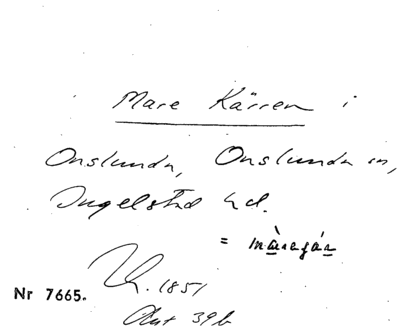 Mare Kärren i
Onslunda, Onslunda sn,
Ingelstad hd.
=
1851
Nr 7665.
Akt 39b